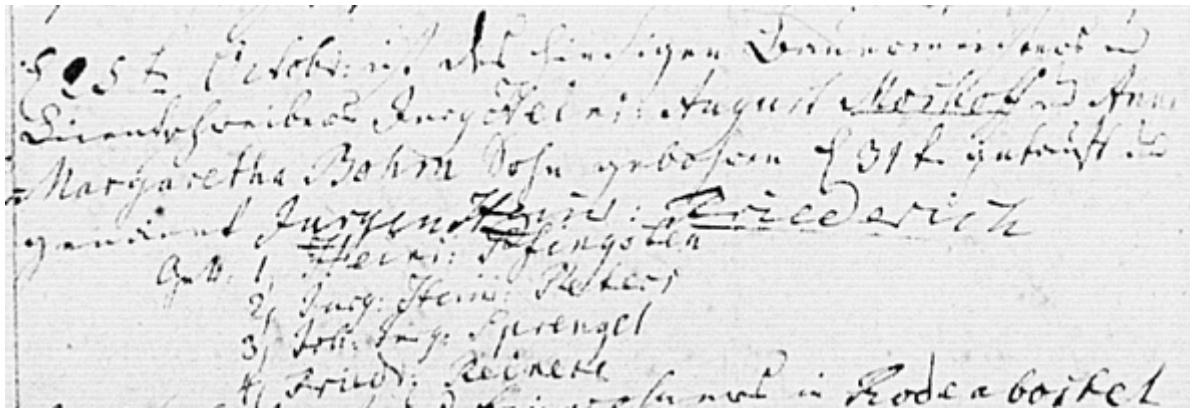 25t Octobr: ist des hiesigen Bauermeisters u
Licentschreibers Jurg Heinr: August Moshoff u Anna
Margaretha Bohm Sohn gebohren d 31t getauft u
genannt Jurgen Hein: Friederich
Gev: 1, Heinr: Pfingsten
2, Jurg: Hein: Peters
3, Joh: Jürg: Sprengel
4, Friedr: Reinecke
in Rodenbostel